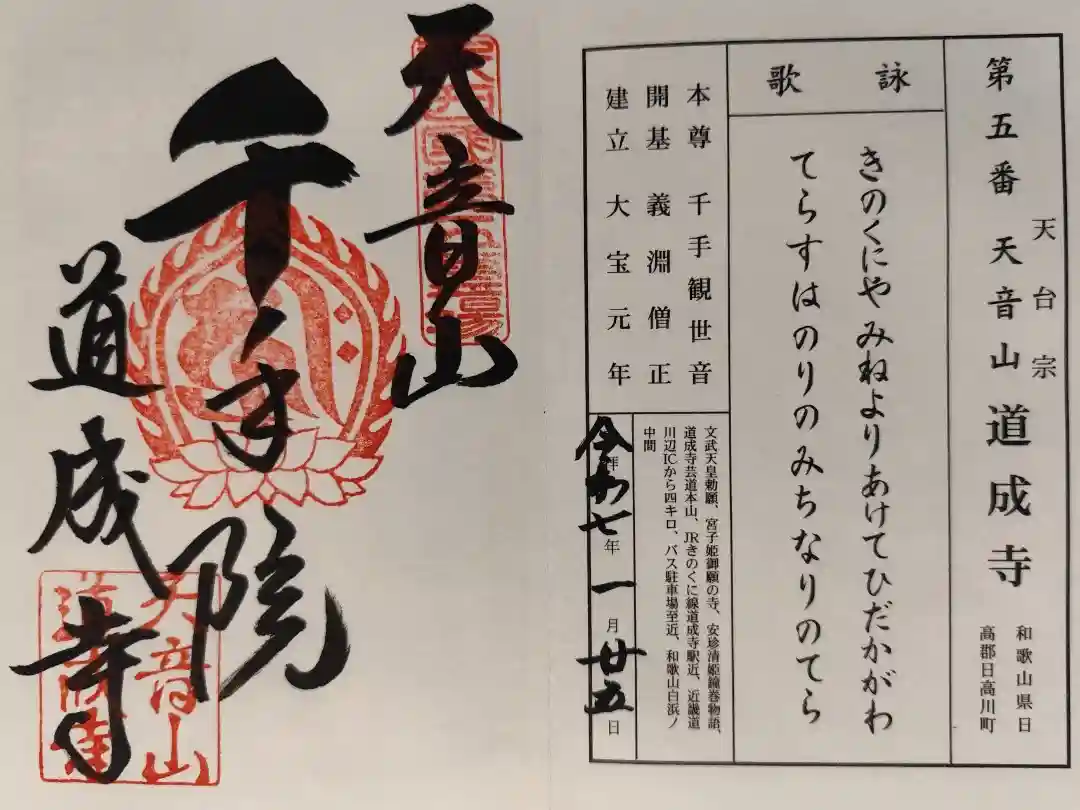 第五番 天音山 道成寺
天台宗
和歌山県日
高郡日高川町
詠歌
きのくにや みねよりあけて ひだかがわ
てらすはのりの みちなりのてら
本尊 千手観世音
開基 義淵僧正
建立 大宝元年
文武天皇勅願、宮子姫御願の寺、安珍清姫鐘巻物語、
道成寺芸道本山、JRきのくに線道成寺駅近、近畿道
川辺ICから四キロ、バス駐車場至近、和歌山白浜ノ
中間
令和七年一月廿五日
天音山
千手院
道成寺
天音山
道成寺